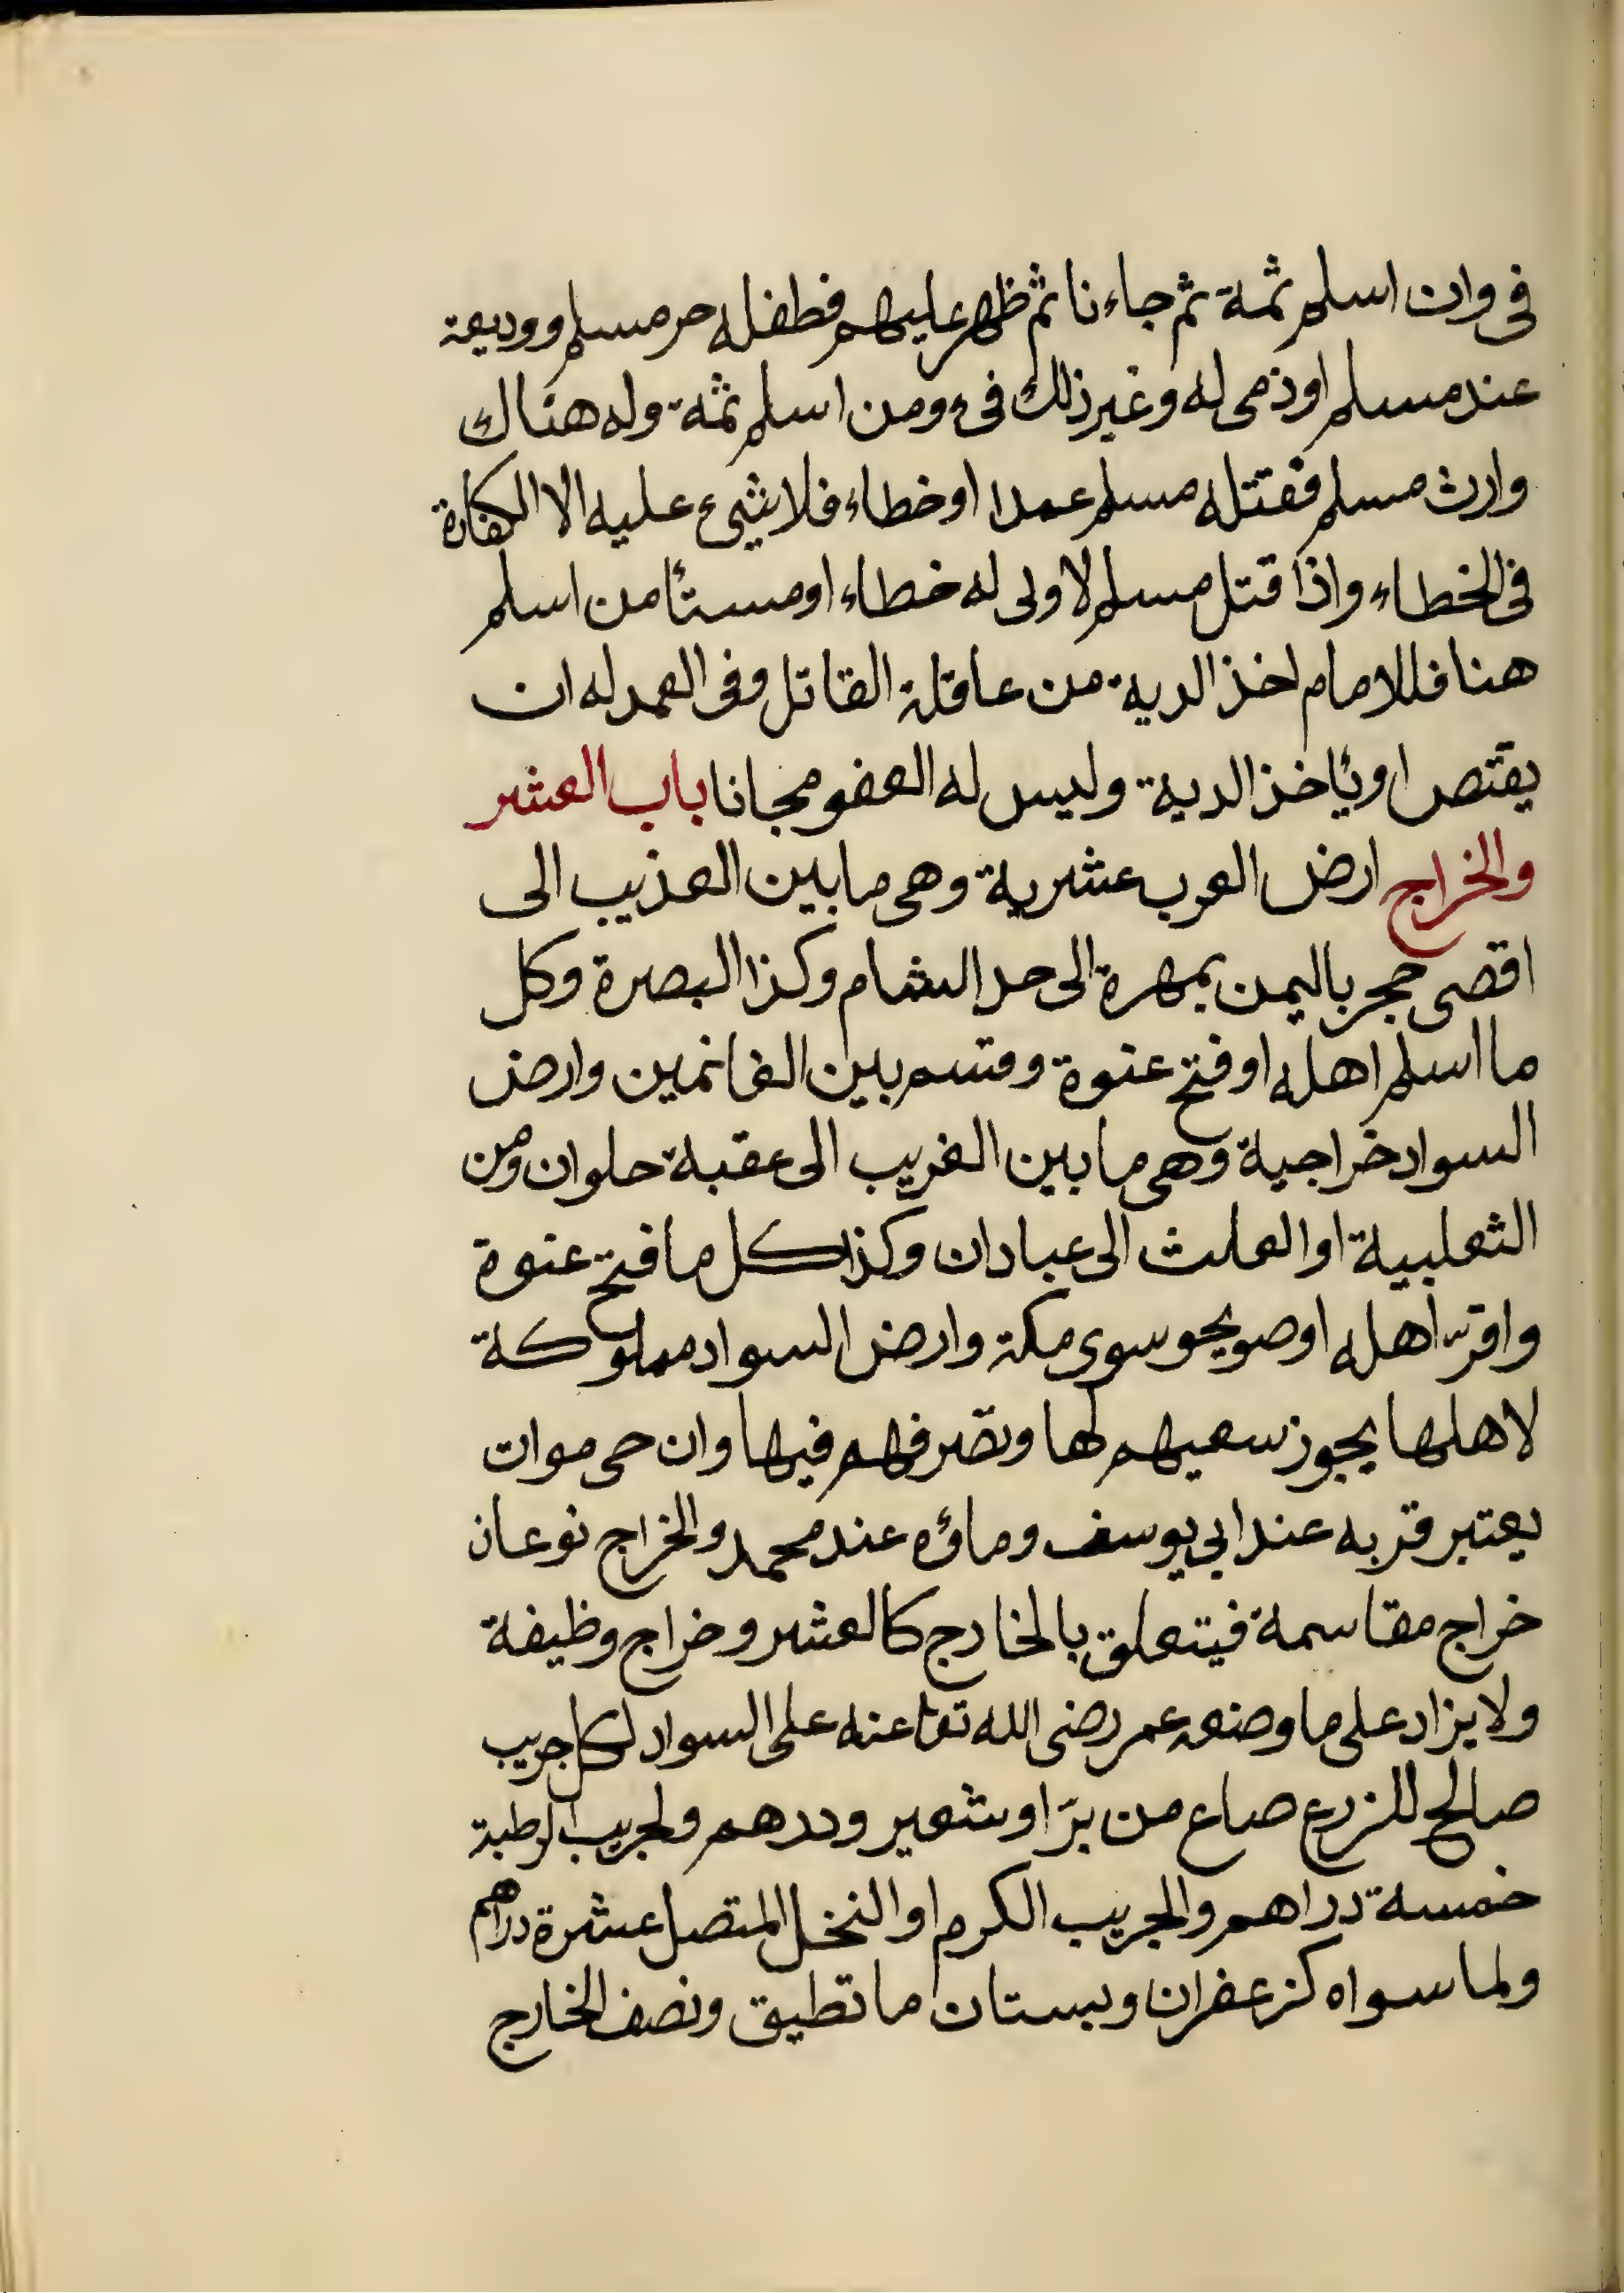 فى وان اسلم ثمة ثم جاءنا ثم ظهر عليهم فطفله حر مسلم ووديعة
عند مسلم اوذمى له وغير ذلك فىء ومن اسلم ثمة وله هناك
وارث مسلم فقتله مسلم عمدا اوخطاء فلا شىء عليه الا الكفارة
فى الخطاء واذا قتل مسلم لاولى له خطاء اومستأمن اسلم
هنا فللامام اخذ الدية من عاقلة القاتل وفى العمد له ان
يقتص اويأخذ الدية وليس له العفو مجانا باب العشر
والخراج ارض العرب عشرية وهى ما بين العذيب الى
اقصى حجر باليمن بمهرة الى حد الشام وكذا البصرة وكل
ما اسلم اهله اوفتح عنوة وقسم بين الغانمين وارض
السواد خراجية وهى ما بين الغريب الى عقبة حلوان ومن
الثعلبية اوالعلث الى عبادان وكذا كل ما فتح عنوة
واقر اهله اوصويحو سوى مكة وارض السواد مملوكة
لاهلها يجوز سعيهم لها وتصرفهم فيها وان حى موات
يعتبر قربه عند ابي يوسف وماؤه عند محمد والخراج نوعان
خراج مقاسمة فيتعلق بالخارج كالعشر وخراج وظيفة
ولا يزاد على ما وضعه عمر رضى الله تعا عنه على السواد لكل جريب
صالح للزرع صاع من برّ اوشعير ودرهم ولجريب الرطبة
خمسة دراهم والجريب الكرم اوالنخل المتصل عشرة دراهم
ولما سواه كزعفران وبستان ما تطيق ونصف الخارج